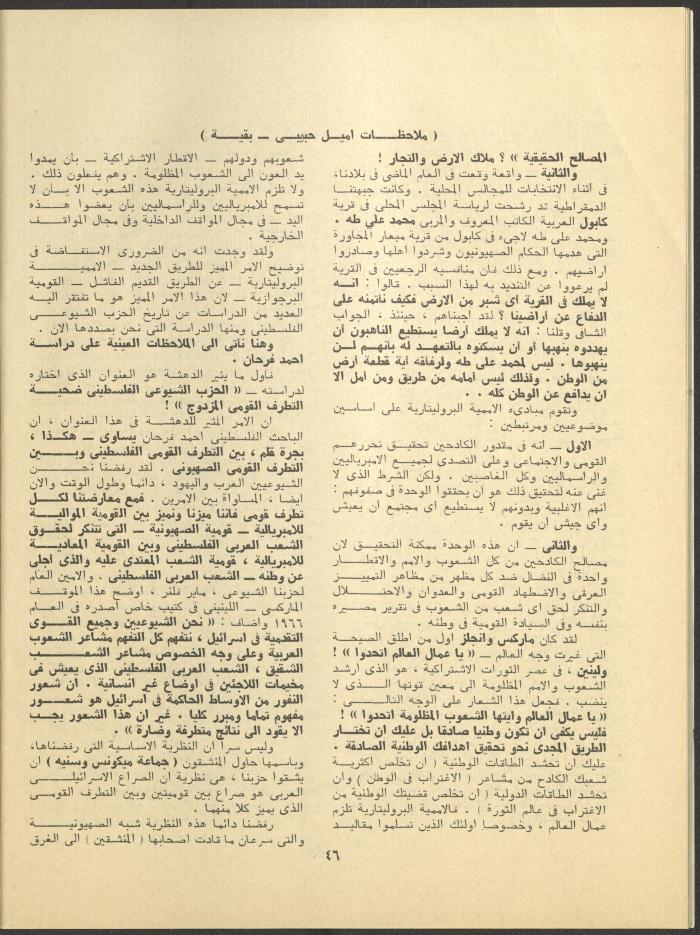 ( ملاحظـــات اميـل حبيبـى ــ بقيـــة )
المصالح الحقيقية » ؟ ملاك الارض والتجار !
والثانية ــ واقعة وقعت فى العام الماضى فى بلادنا،
فى أثناء الانتخابات للمجالس المحلية . وكانت جبهتنا
الدمقراطية قد رشحت لرياسة المجلس المحلى فى قرية
كابول العربية الكاتب المعروف والمربى محمد على طه .
ومحمد على طه لاجىء فى كابول من قرية ميعار المجاورة
التى هدمها الحكام الصهيونيون وشردوا أهلها وصادروا
اراضيهم . ومع ذلك فان منافسيه الرجعيين فى القرية
لم يرعووا عن التنديد به لهذا السبب . قالوا : انــه
لا يملك فى القرية أى شبر من الارض فكيف نأتمنه على
الدفاع عن أراضينا ؟ لقد اجبناهم ، حينئذ ، الجواب
الشافى وقلنا : انه لا يملك أرضا يستطيع الناهبون أن
يهددوه بنهبها أو أن يسكتوه بالتعهد له بأنهم لــن
ينهبوها . ليس لمحمد على طه ولرفاقه أية قطعة أرض
من الوطن . ولذلك ليس أمامه من طريق ومن أمل الا
ان يدافع عن الوطن كله . .
وتقوم مبادىء الاممية البروليتارية على اساسين
موضوعيين ومرتبطين :
الاول ــ انه فى مقدور الكادحين تحقيـق تحررهـم
القومى والاجتماعى وعلى التصدى لجميـع الامبرياليين
والراسماليين وكل الغاصبين . ولكن الشرط الذى لا
غنى عنه لتحقيق ذلك هو أن يحققوا الوحدة فى صفوفهم :
انهم الاغلبية وبدونهم لا يستطيع اى مجتمع ان يعيش
واى جيش ان يقوم .
والثانى ــ ان هذه الوحدة ممكنة التحقيـق لان
مصالح الكادحين من كل الشعوب والامم والاقطــار
واحدة فى النضال ضد كل مظهر من مظاهر التمييــز
العرقى والاضطهاد القومى والعدوان والاحتــلال
والتنكر لحق اى شعب من الشعوب فى تقرير مصـيره
بنفسه وفى السيادة القومية فى وطنه .
لقد كان ماركس وانجلز اول من اطلق الصيحـة
التى غيرت وجه العالم ــ « يا عمال العالم اتحدوا » !
ولينين ، فى عصر الثورات الاشتراكية ، هو الذى ارشد
الشعوب والامم المظلومة الى معين قوتها الــذى لا
ينضب . فجعل هذا الشعار على الوجه التالــى :
« يا عمال العالم وايتها الشعوب المظلومة اتحدوا » !
فليس يكفى ان تكون وطنيا صادقا بل عليك ان تختـار
الطريق المجدى نحو تحقيق اهدافك الوطنية الصادقة .
عليك ان تحشد الطاقات الوطنية ( ان تخلص اكثريـة
شعبك الكادح من مشاعر ( الاغتراب فى الوطن ) وان
تحشد الطاقات الدولية ( ان تخلص قضيتك الوطنية من
الاغتراب فى عالم الثورة ) . فالاممية البروليتارية تلزم
عمال العالم ، وخصوصا اولئك الذين تسلموا مقاليـد
شعوبهم ودولهم ــ الاقطار الاشتراكية ــ بان يمدوا
يد العون الى الشعوب المظلومة . وهم يفعلون ذلك .
ولا تلزم الاممية البروليتارية هذه الشعوب الا بـان لا
تسمح للامبرياليين وللراسماليين بان يعضوا هــذه
اليد ــ فى مجال المواقف الداخلية وفى مجال المواقــف
الخارجية .
ولقد وجدت انه من الضرورى الاستفـاضـة فى
توضيح الامر المميز للطريق الجديد ــ الامميــــة
البروليتارية ــ عن الطريق القديم الفاشـل ــ القومية
البرجوازية ــ لان هذا الامر المميز هو ما تفتقر اليـه
العديد من الدراسات عن تاريخ الحزب الشيوعــى
الفلسطينى ومنها الدراسة التى نحن بصددها الآن .
وهنا نأتى الى الملاحظات العينية على دراسـة
احمد فرحان .
فأول ما يثير الدهشة هو العنوان الذى اختاره
لدراسته ــ « الحزب الشيوعى الفلسطينى ضحيـة
التطرف القومى المزدوج » !
ان الامر المثير للدهشـة فى هذا العنوان ، ان
الباحث الفلسطينى احمد فرحان يساوى ــ هكـذا ،
بجرة قلم ، بين التطرف القومى الفلسطينى وبــين
التطرف القومى الصهيونى . لقد رفضنا نحــن
الشيوعيين العرب واليهود ، دائما وطول الوقت والآن
ايضا ، المساواة بين الامرين . فمع معارضتنا لكــل
تطرف قومى فاننا ميزنا ونميز بين القومية المواليــة
للامبريالية ــ قومية الصهيونية ــ التى تتنكر لحقــوق
الشعب العربى الفلسطينى وبين القومية المعاديــة
للامبريالية ، قومية الشعب المعتدى عليه والذى أجلى
عن وطنه ــ الشعب العربى الفلسطينى . والامين العام
لحزبنا الشيوعى ، ماير فلنر ، اوضح هذا الموقــف
الماركسى ــ اللينينى فى كتيب خاص اصدره فى العـام
١٩٦٦ واضاف : « نحن الشيوعيين وجميع القــوى
التقدمية فى اسرائيل ، نتفهم كل التفهم مشاعر الشعوب
العربية وعلى وجه الخصوص مشاعر الشعــــب
الشقيق ، الشعب العربى الفلسطينى الذى يعيش فى
مخيمات اللاجئين فى اوضاع غير انسانية . ان شعور
النفور من الاوساط الحاكمة فى اسرائيل هو شعــور
مفهوم تماما ومبرر كليا . غير ان هذا الشعور يجــب
الا يقود الى نتائج متطرفة وضارة » .
وليس سرا ان النظرية الاساسية التى رفضناها،
وباسمها حاول المنشقون ( جماعة ميكونس وسنيه ) ان
يشقوا حزبنا ، هى نظرية ان الصراع الاسرائيلــى
العربى هو صراع بين قوميتين وبين التطرف القومــى
الذى يميز كلا منهما .
رفضنا دائما هذه النظرية شبه الصهيونيــــة
والتى سرعان ما قادت اصحابها ( المنشقين ) الى الغرق
٤٦